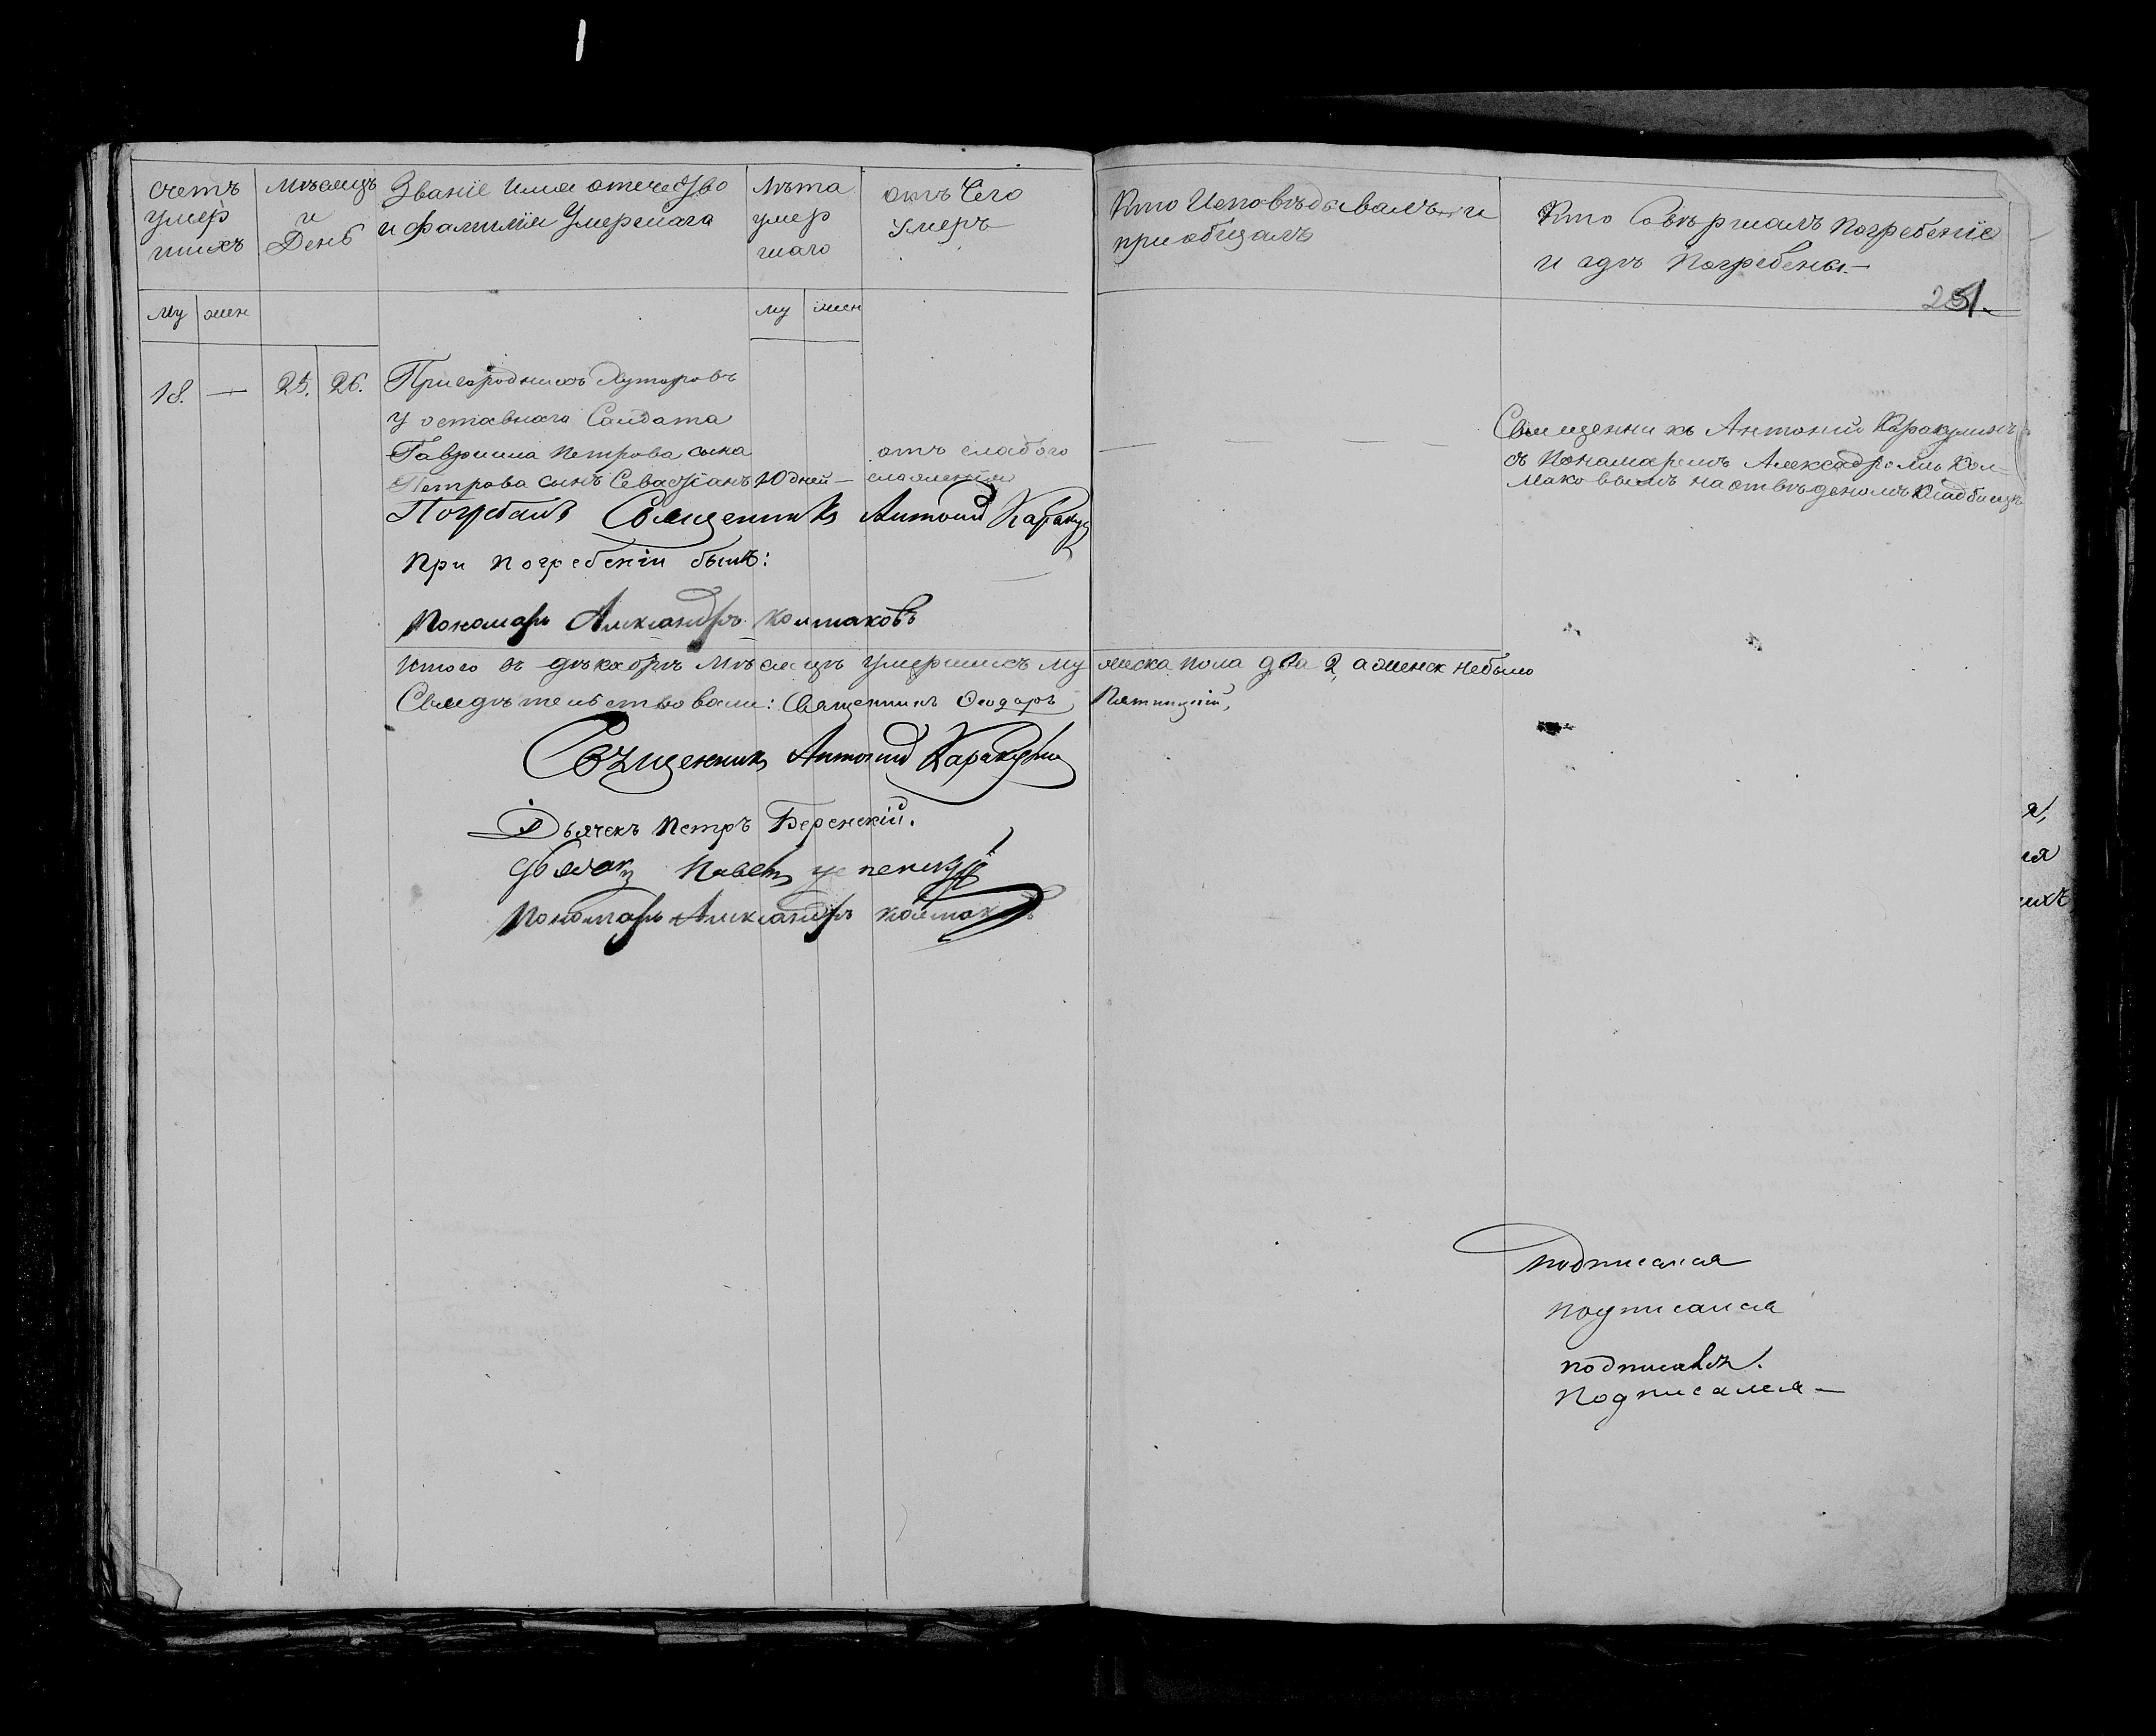 счетъ умер шихъ
мѣсяцъ и День
Званіе Имя отечество и фамилія Умершага
Лѣта умер шаго
отъ Чего Умеръ
Кто Исповѣдывалъ и приобщалъ
Кто Совѣршалъ Погребеніе и гдѣ Погребены
251.
му жен
му жен
18. — 25. 26. Пригороднихъ Хуторовъ
у отставнаго Салдата
Гавриила Петрова сына
Петрова сынъ Севастіанъ 10 дней —
отъ слабого
сложенія
— — — —
Священникъ Антоній Каракулинъ
съ Понамаремъ Александромъ Кол-
маковымъ на отвѣденомъ Кладбищѣ
Погребалъ Священникъ Антоній Кара
При погребеніи былъ:
Пономарь Александръ Колмаковъ
Итого въ дѣкабрѣ мѣсяцѣ умершихъ мужеска пола два 2, а женск небыло
Свидѣтельствовали: Священникъ Феодоръ Пятницкій,
Священникъ Антоній
Дьячекъ Петръ Беренскій.
Дьячокъ Павелъ
Пономарь Александръ Колмаковъ
подписался
подписался
подписался.
Подписался —
я,
ихъ